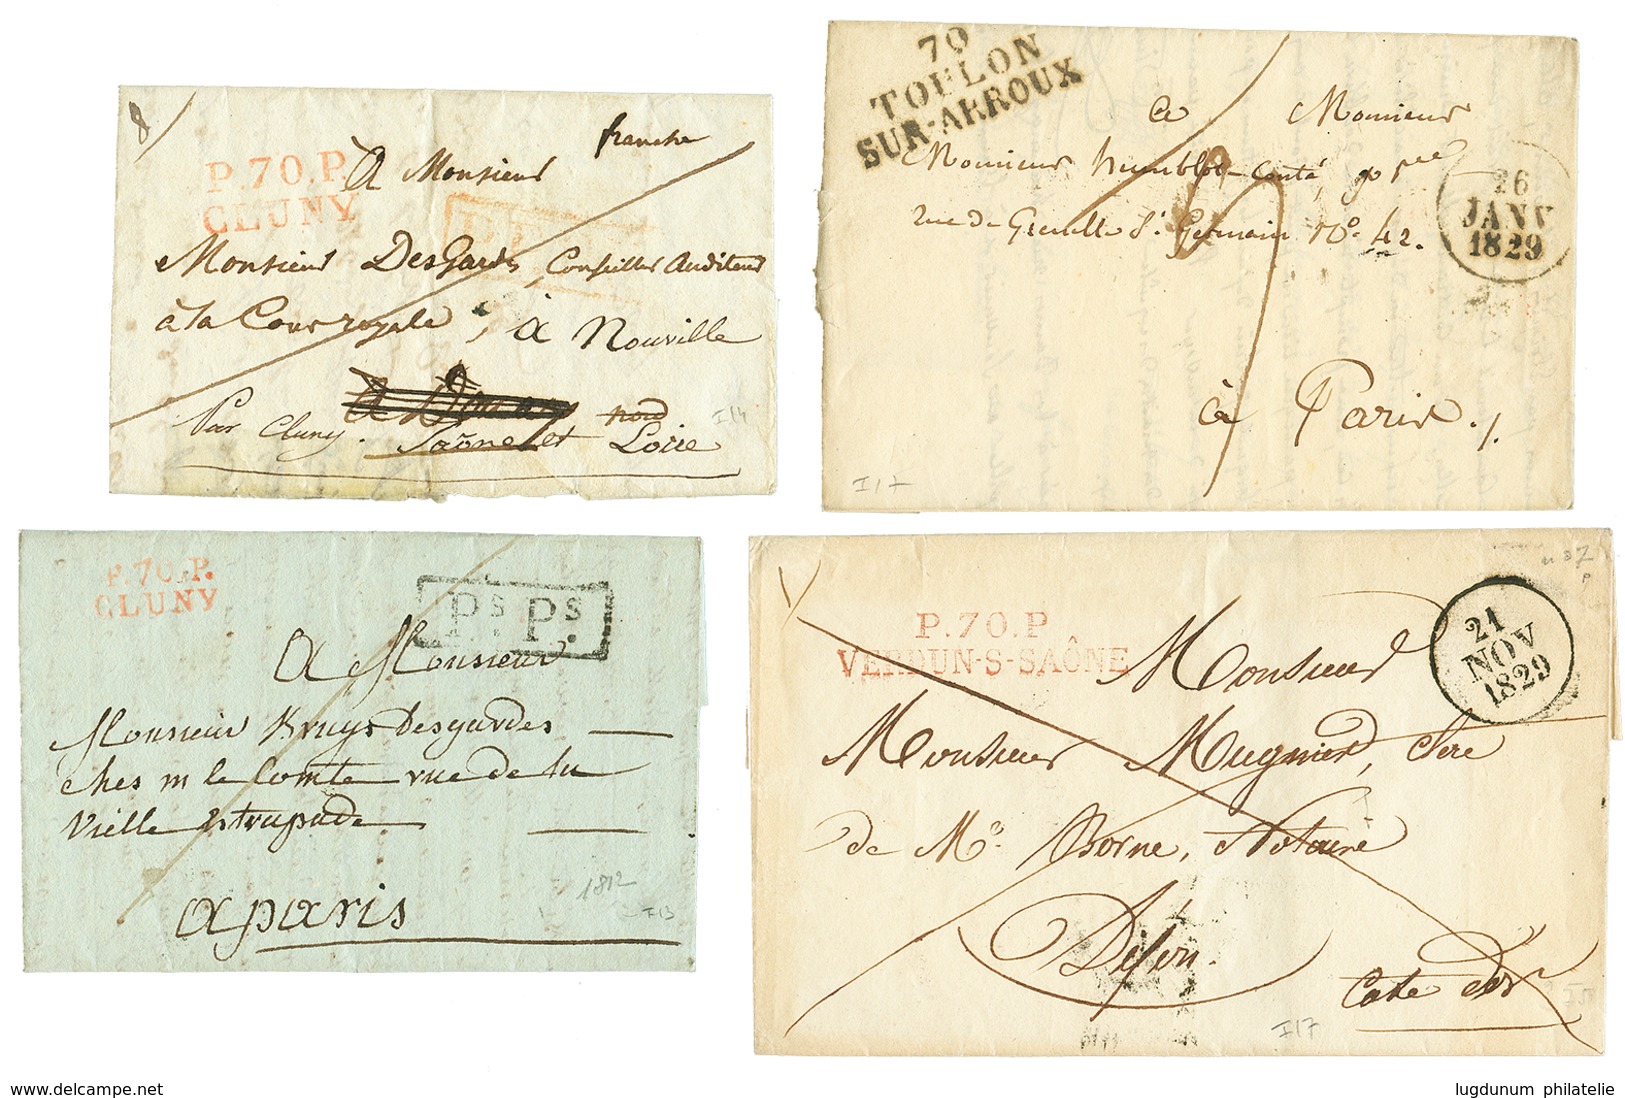 8/
franche
P.70.P.
CLUNY
A Monsieur
P.P.
Monsieur DesGards, Conseiller Auditeur
à la Cour royale, à Nouville
A Douay Nord
Par Cluny. Saône et Loire
I/4
70
TOULON
SUR-ARROUX
A Monsieur
Monsieur humblot-Conté,
rue de Grenelle St. Germain No. 42.
26
JANV
1829
à Paris.
I/7
P.70.P.
CLUNY
Ps. Ps.
A Monsieur
Monsieur Bruys Desgardes
ches m le Comte rue de la
Vielle Estrapade
a paris
1812
I/3
P.70.P
VERDUN-S-SAÔNE
21
NOV
1829
Monsieur
Monsieur Mugnier, Clerc
de Me. Borne, Notaire
Dijon.
Cote d'or
I/7
www.delcampe.net
lugdunum philatelie